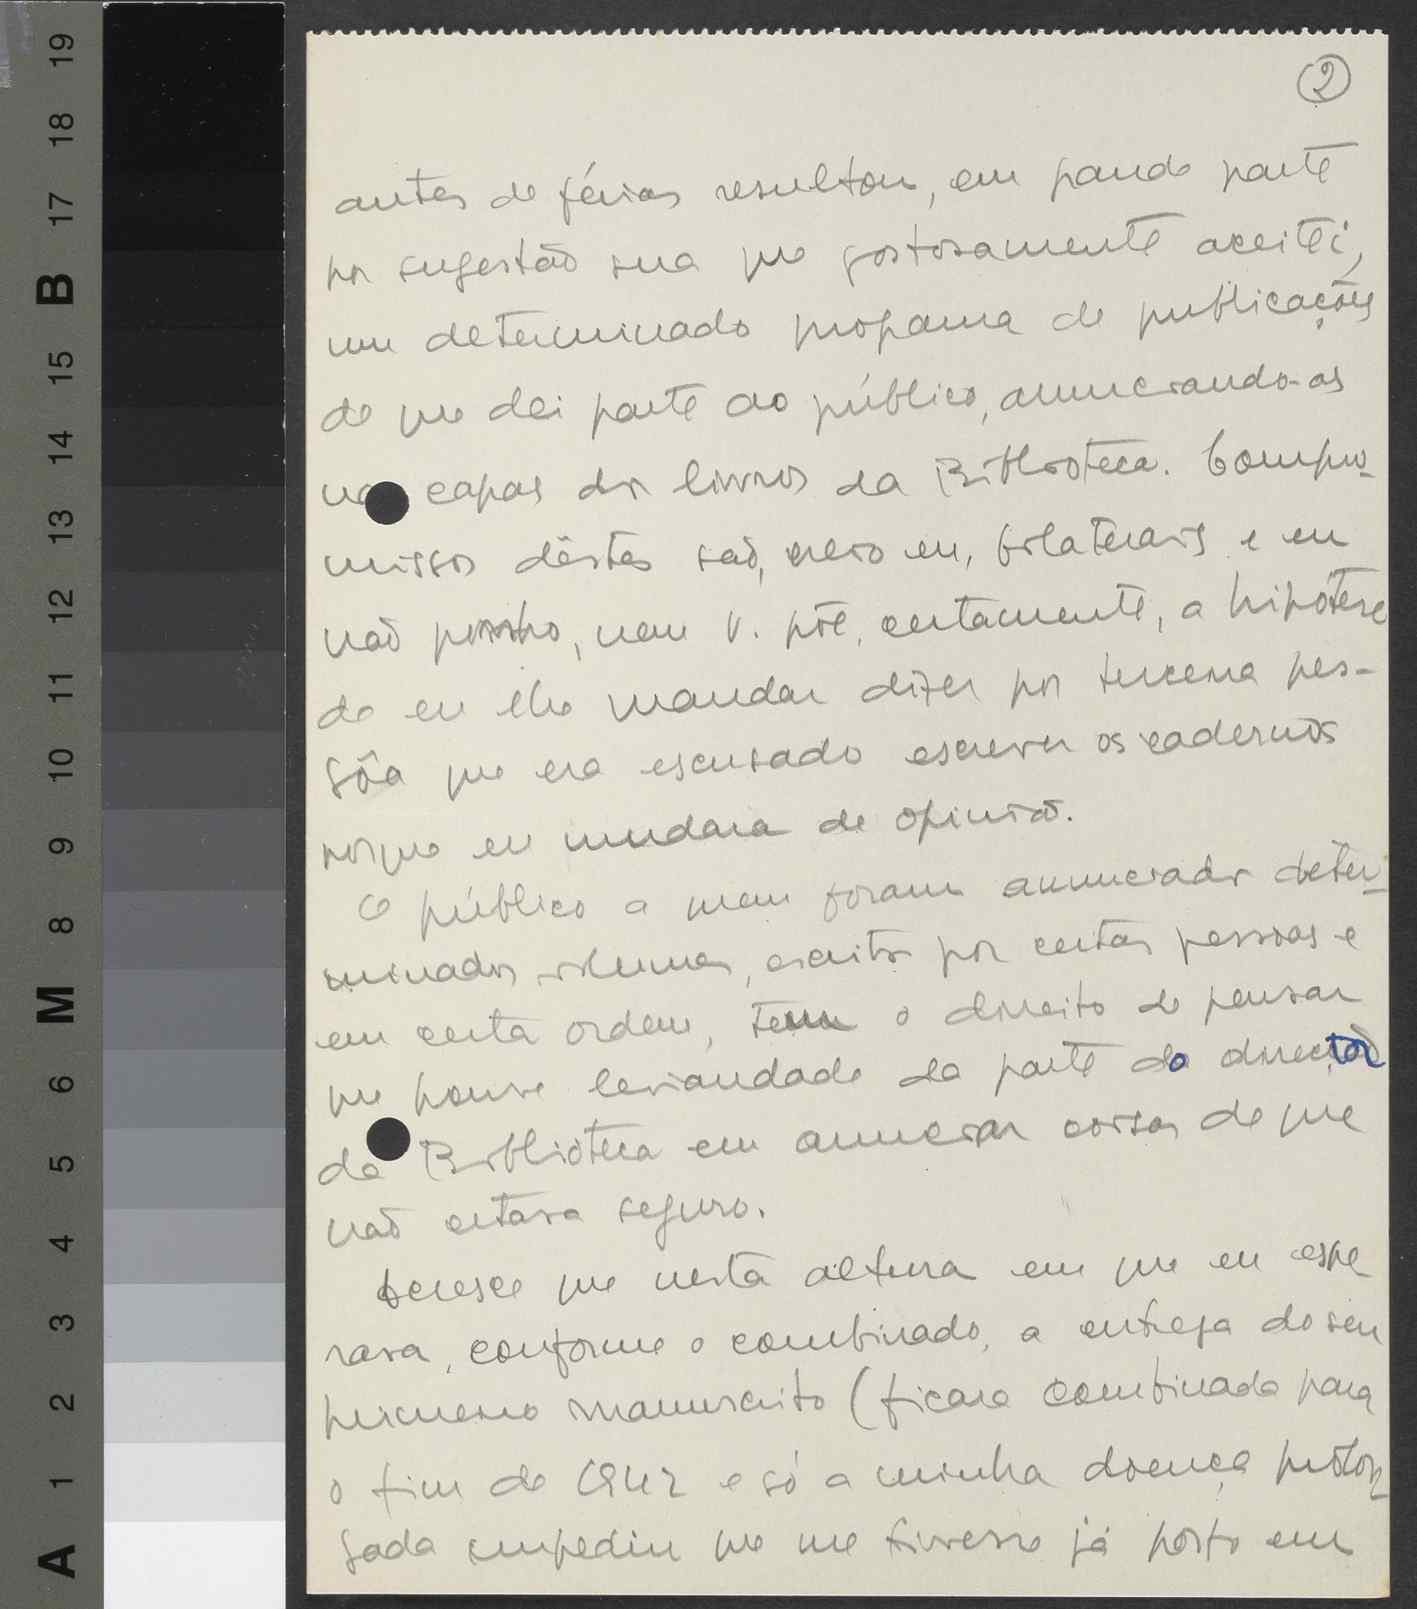 2
antes de férias resultou, em grande parte
por sugestão sua que gostosamente aceitei,
um determinado programa de publicações
de que dei parte ao público, anunciando-as
nas capas dos livros da Biblioteca. Compro-
missos dêstes são, creio eu, bilaterais e eu
não ponho, nem V. põe, certamente, a hipótese
de eu lhe mandar dizer por terceira pes-
sôa que era escusado escrever os cadernos
porque eu mudara de opinião.
O público a quem foram anunciados deter-
minados volumes, escritos por certas pessoas e
em certa ordem, tem o direito de pensar
que houve leviandade da parte do director
da Biblioteca em anunciar coisas de que
não estava seguro.
Acresce que nesta altura em que eu espe
rava, conforme o combinado, a entrega do seu
primeiro manuscrito (ficara combinado para
o fim de 1942 e só a minha doença prolon-
gada impediu que me tivesse já posto em
19
18
17
B
15
14
13
12
11
10
9
8
M
6
5
4
3
2
1
A